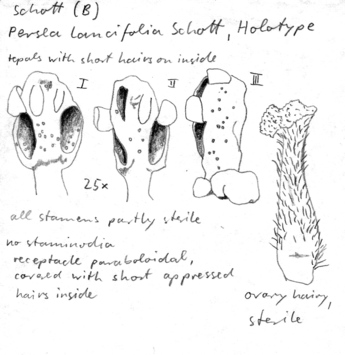 Schott (B)
Persea lancifolia Schott, Holotype
tepals with short hairs on inside
I II III
25x
all stamens partly sterile
no staminodia
receptacle paraboloidal,
covered with short appressed
hairs inside
ovary hairy,
sterile